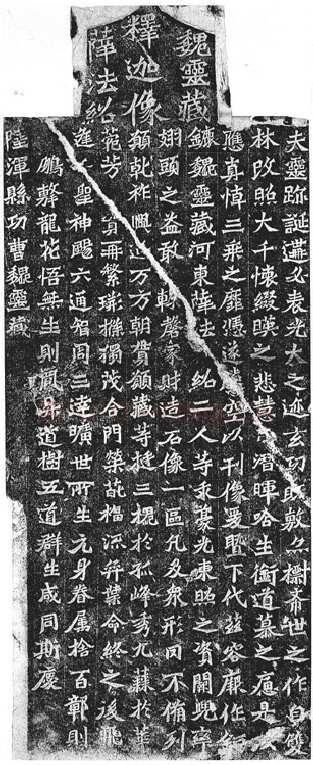 魏靈藏
釋迦像
薛法紹
夫靈跡誕遘必表光大之迹玄功既敷亦摽希世之作自雙
林改照大千懷綴暎之悲慧潛暉哈生銜道慕之痛是以
應真悼三乘之靡憑遂空以刊像爰暨下代茲容厥作鉅
鏕魏靈藏河東薛法紹二人等求豪光東照之資闕兜率
翅頭之益敢輒磬家財造石像一區凡及衆形罔不備列
願乾祚興延万方朝貫願藏等挺三槐於孤峰秀九蕀於華
菀芳實再繁荊條獨茂合門榮葩福流弈葉命終之後飛
逢聖神颺六通智周三達曠世所生元身眷屬捨百鄣則
鵬擊龍花悟無生則鳳昇道樹五道群生咸同斯慶
陸渾縣功曹魏靈藏